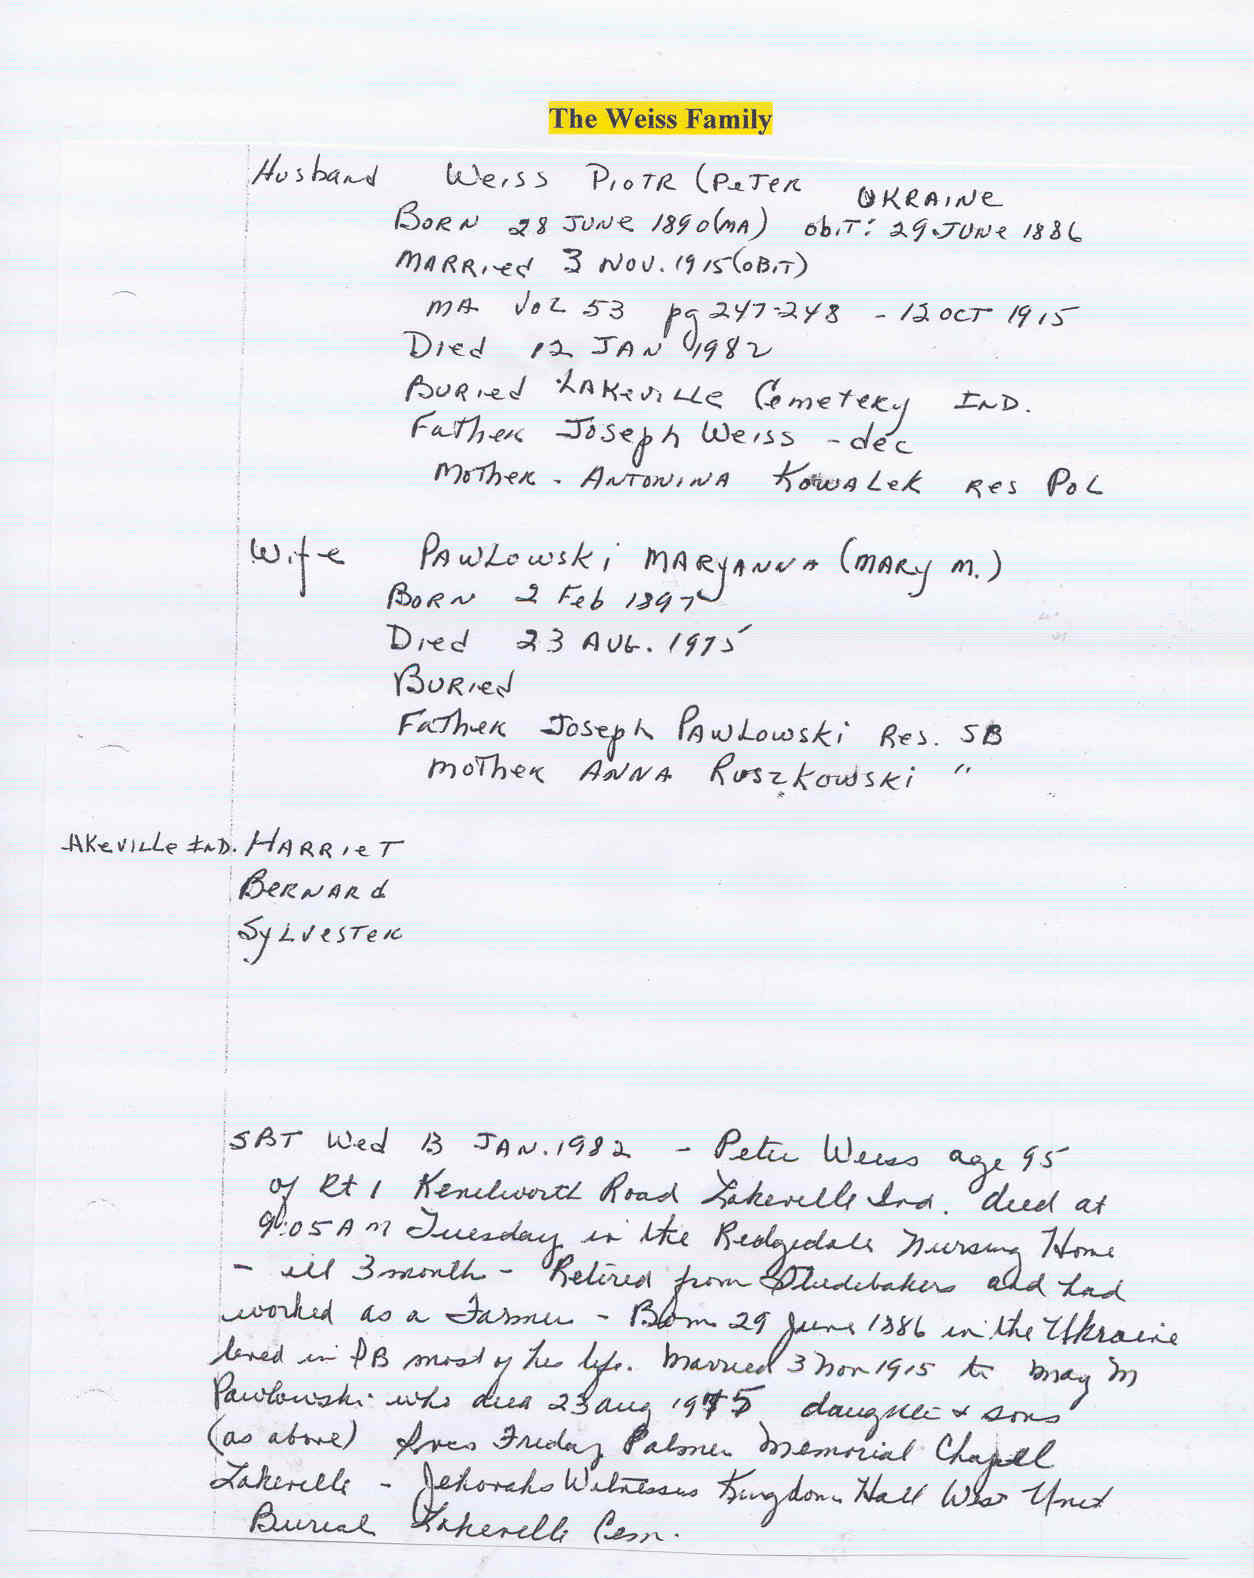 The Weiss Family
Husband Weiss PIOTR (PETER UKRAINE
BORN 28 JUNE 1890 (MA) obiT: 29 JUNE 1886
MARRied 3 NOV. 1915 (OBIT)
MA VOL 53 pg 247-248 - 12 OCT 1915
Died 12 JAN 1982
BURied LAKEVILLE CemeteRy IND.
FATheR Joseph Weiss - dec
MOTheR - ANTONINA KOWALEK Res POL
Wife PAWLOWSKI MARYANNA (MARY M.)
BORN 2 Feb 1897
Died 23 AUG. 1975
BURied
FATheR Joseph PAWLOWSKI Res. SB
MOTheR ANNA RUSZKOWSKI "
AKEVILLE IND. HARRIET
BERNARd
SYLVESTER
SBT Wed 13 JAN. 1982 - Peter Weiss age 95
of Rt 1 Kenilworth Road Lakeville Ind. died at
9:05 AM Tuesday in the Ridgedale Nursing Home
- ill 3 months - Retired from Studebakers and had
worked as a Farmer - Born 29 June 1886 in the Ukraine
lived in SB most of his life. Married 3 Nov 1915 to Mary M
Pawlowski who died 23 Aug 1975 daughter & sons
(as above) Svcs Friday Palmer Memorial Chapel
Lakeville - Jehovahs Witnesses Kingdom Hall West Unit
Burial Lakeville Cem.